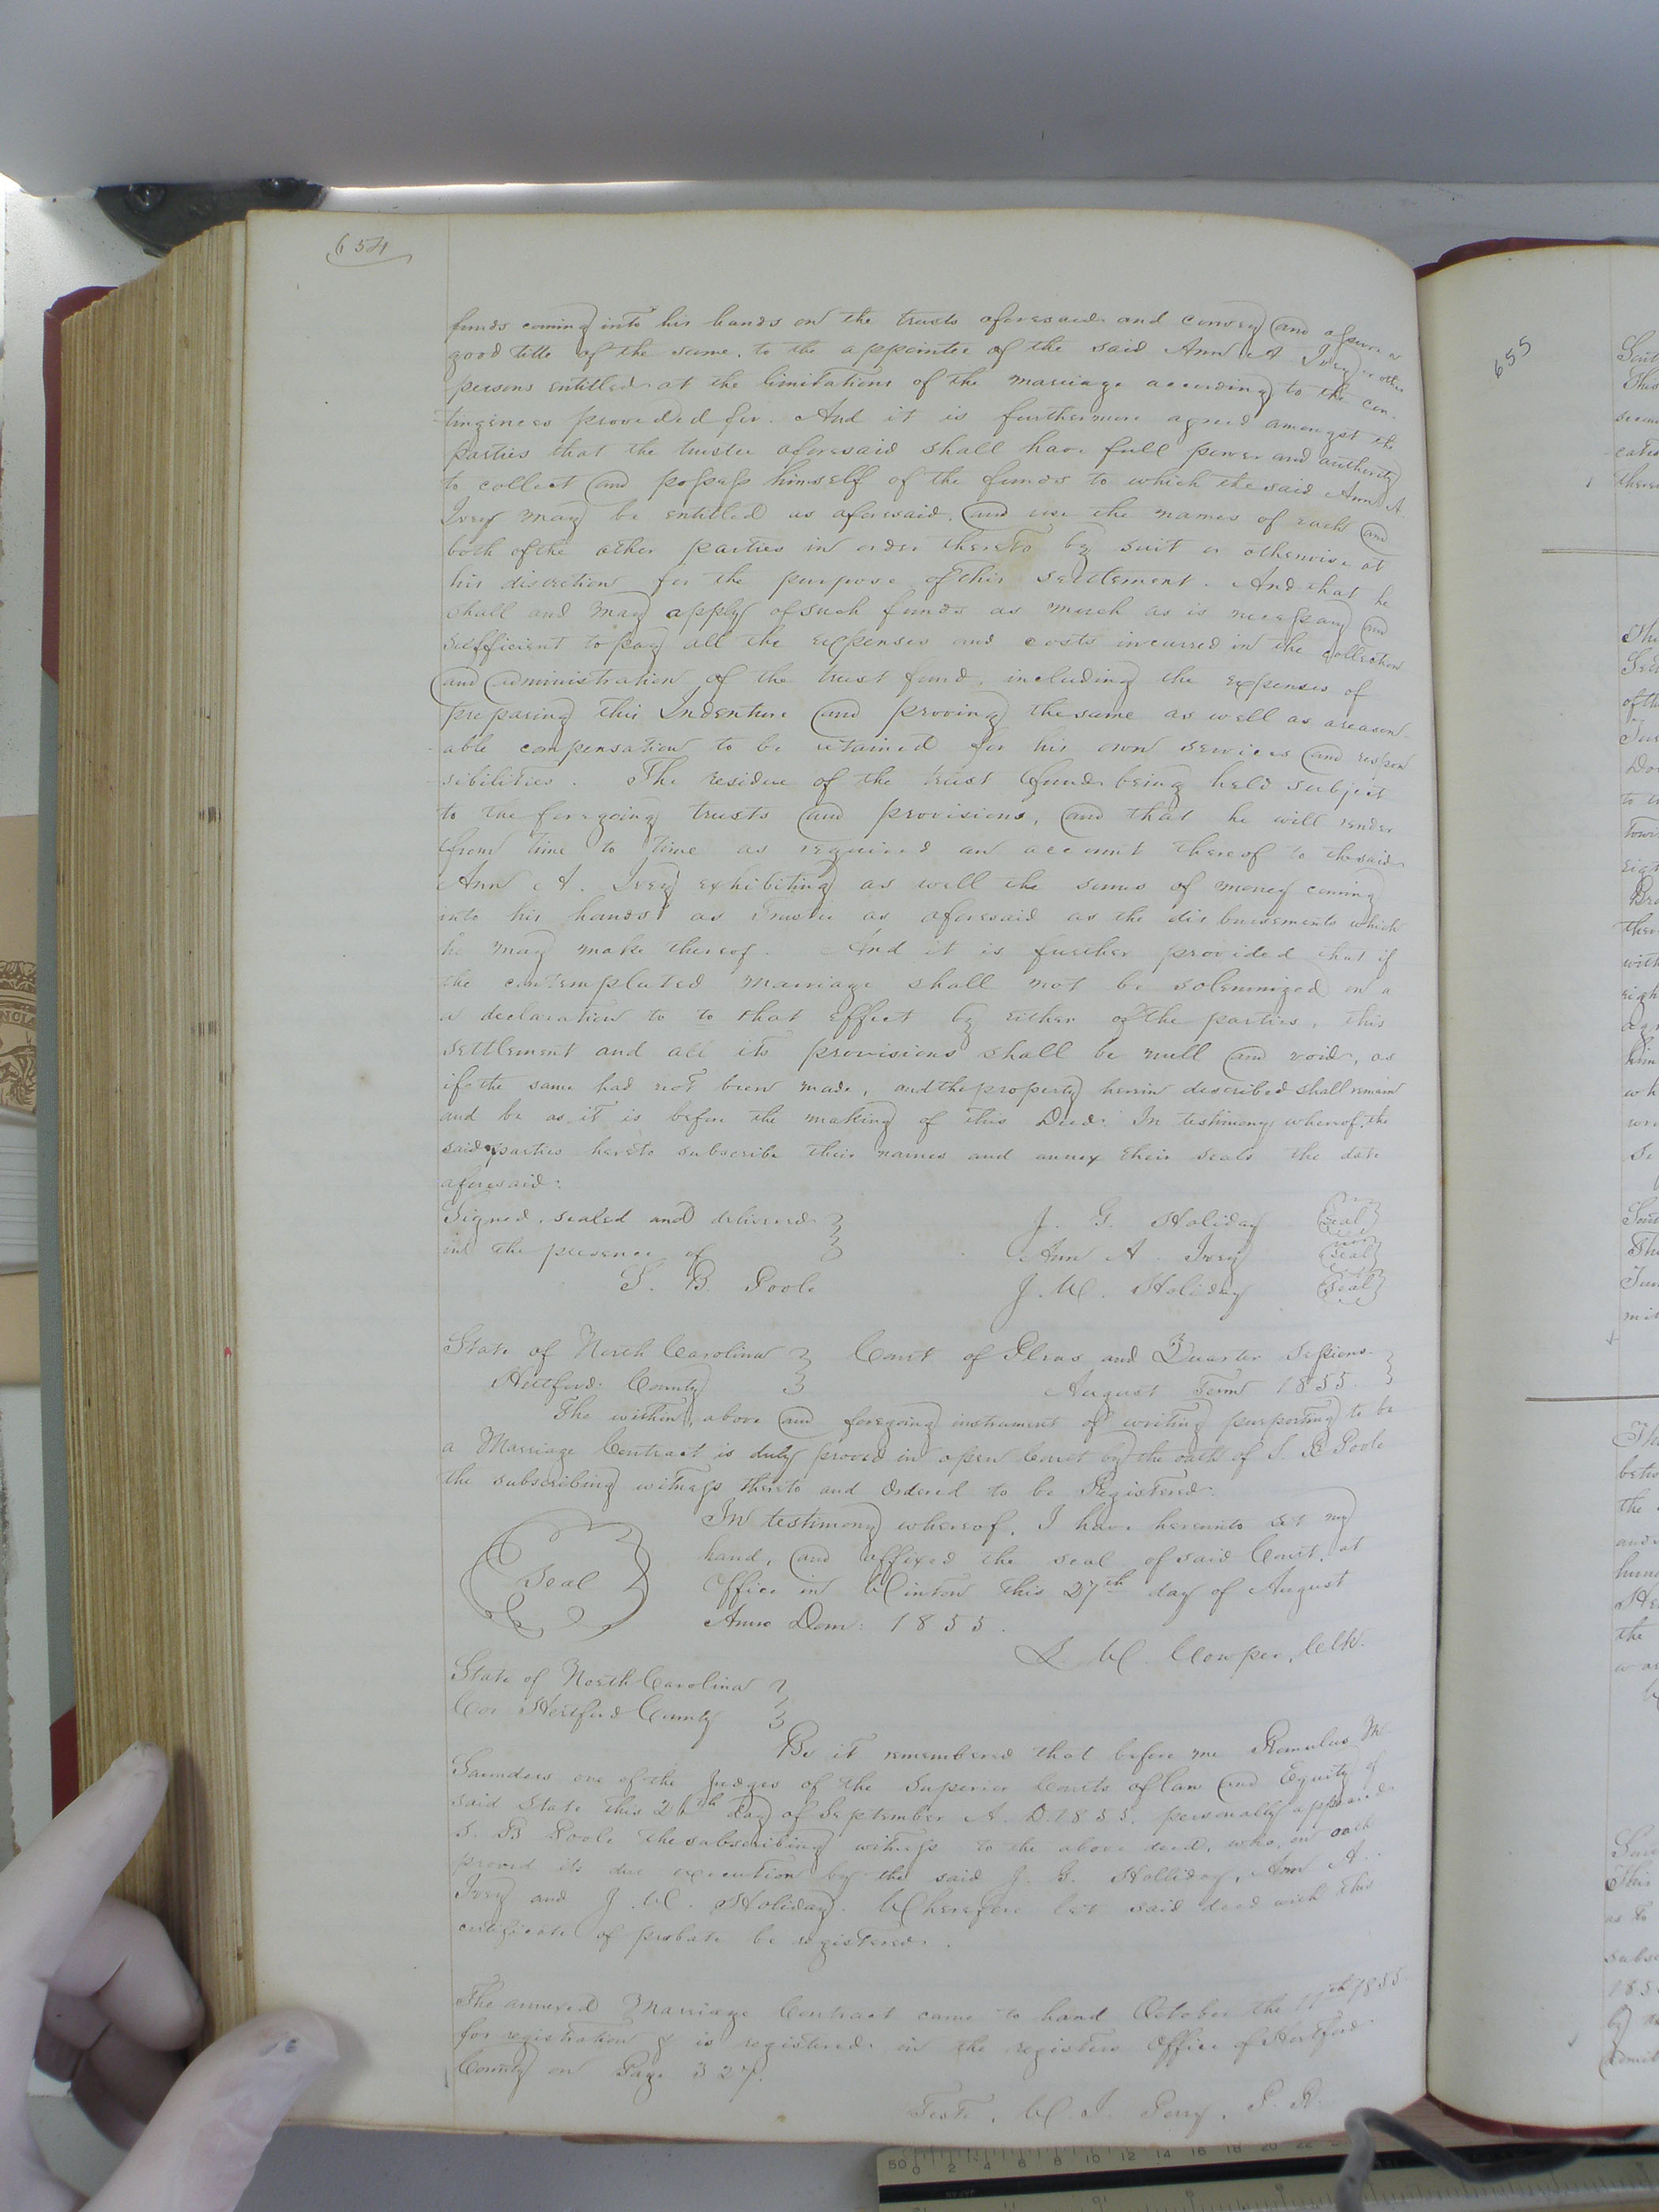 654
funds coming into his hands on the trusts aforesaid and convey and assure a
good title of the same, to the appointee of the said Ann A Ivey or other
persons entitled at the limitations of the marriage according to the con-
tingencies provided for. And it is furthermore agreed amongst the
parties that the trustee aforesaid shall have full power and authority
to collect and possess himself of the funds to which the said Ann A.
Ivey may be entitled as aforesaid, and use the names of each and
both of the other parties in order thereto by suit or otherwise at
his discretion for the purpose of this settlement. And that he
shall and may apply of such funds as much as is necessary and
sufficient to pay all the expenses and costs incurred in the collection
and administration of the trust fund, including the expenses of
preparing this Indenture and proving the same as well as a reason-
able compensation to be retained for his own services and respon
-sibilities. The residue of the trust funds being held subject
to the foregoing trusts and provisions, and that he will render
from time to time as required an account thereof to the said
Ann A. Ivey exhibiting as well the sums of money coming
into his hands as Trustee as aforesaid as the disbursements which
he may make thereof. And it is further provided that if
the contemplated marriage shall not be solemnized on a
a declaration to to that effect by either of the parties, this
settlement and all its provisions shall be null and void, as
if the same had not been made, and the property herein described shall remain
and be as it is before the making of this Deed. In testimony whereof, the
said parties hereto subscribe their names and annex their seals the date
aforesaid.
Signed, sealed and delivered J. G. Holiday Seal
in the presence of Ann A. Ivey Seal
S. B. Poole J. W. Holiday Seal
State of North Carolina Court of Pleas and Quarter Sessions
Hertford County August Term 1855.
The within, above and foregoing instrument of writing purporting to be
a Marriage Contract is duly proved in open Court by the oath of S. B Poole
the subscribing witness thereto and Ordered to be Registered.
In testimony whereof, I have hereunto set my
hand, and affixed the seal of said Court, at
Seal Office in Winton this 27th day of August
Anno Dom: 1855.
L. W. Cowper, Clk.
State of North Carolina
Hertford County
Be it remembered that before me Romulus M.
Saunders one of the Judges of the Superior Courts of law and Equity of
said State this 26th day of September A. D. 1855, personally appeared
S. B Poole the subscribing witness to the above deed, who, on oath
proved its due execution by the said J. G. Holliday, Ann A.
Ivey and J. W. Holiday. Wherefore let said deed with this
certificate of probate be registered.
The annexed Marriage Contract came to hand October the 1855
for registration & is registered in the registers Office of Hertford
County on Page 327.
Teste, W. J. Perry, P. R.
655